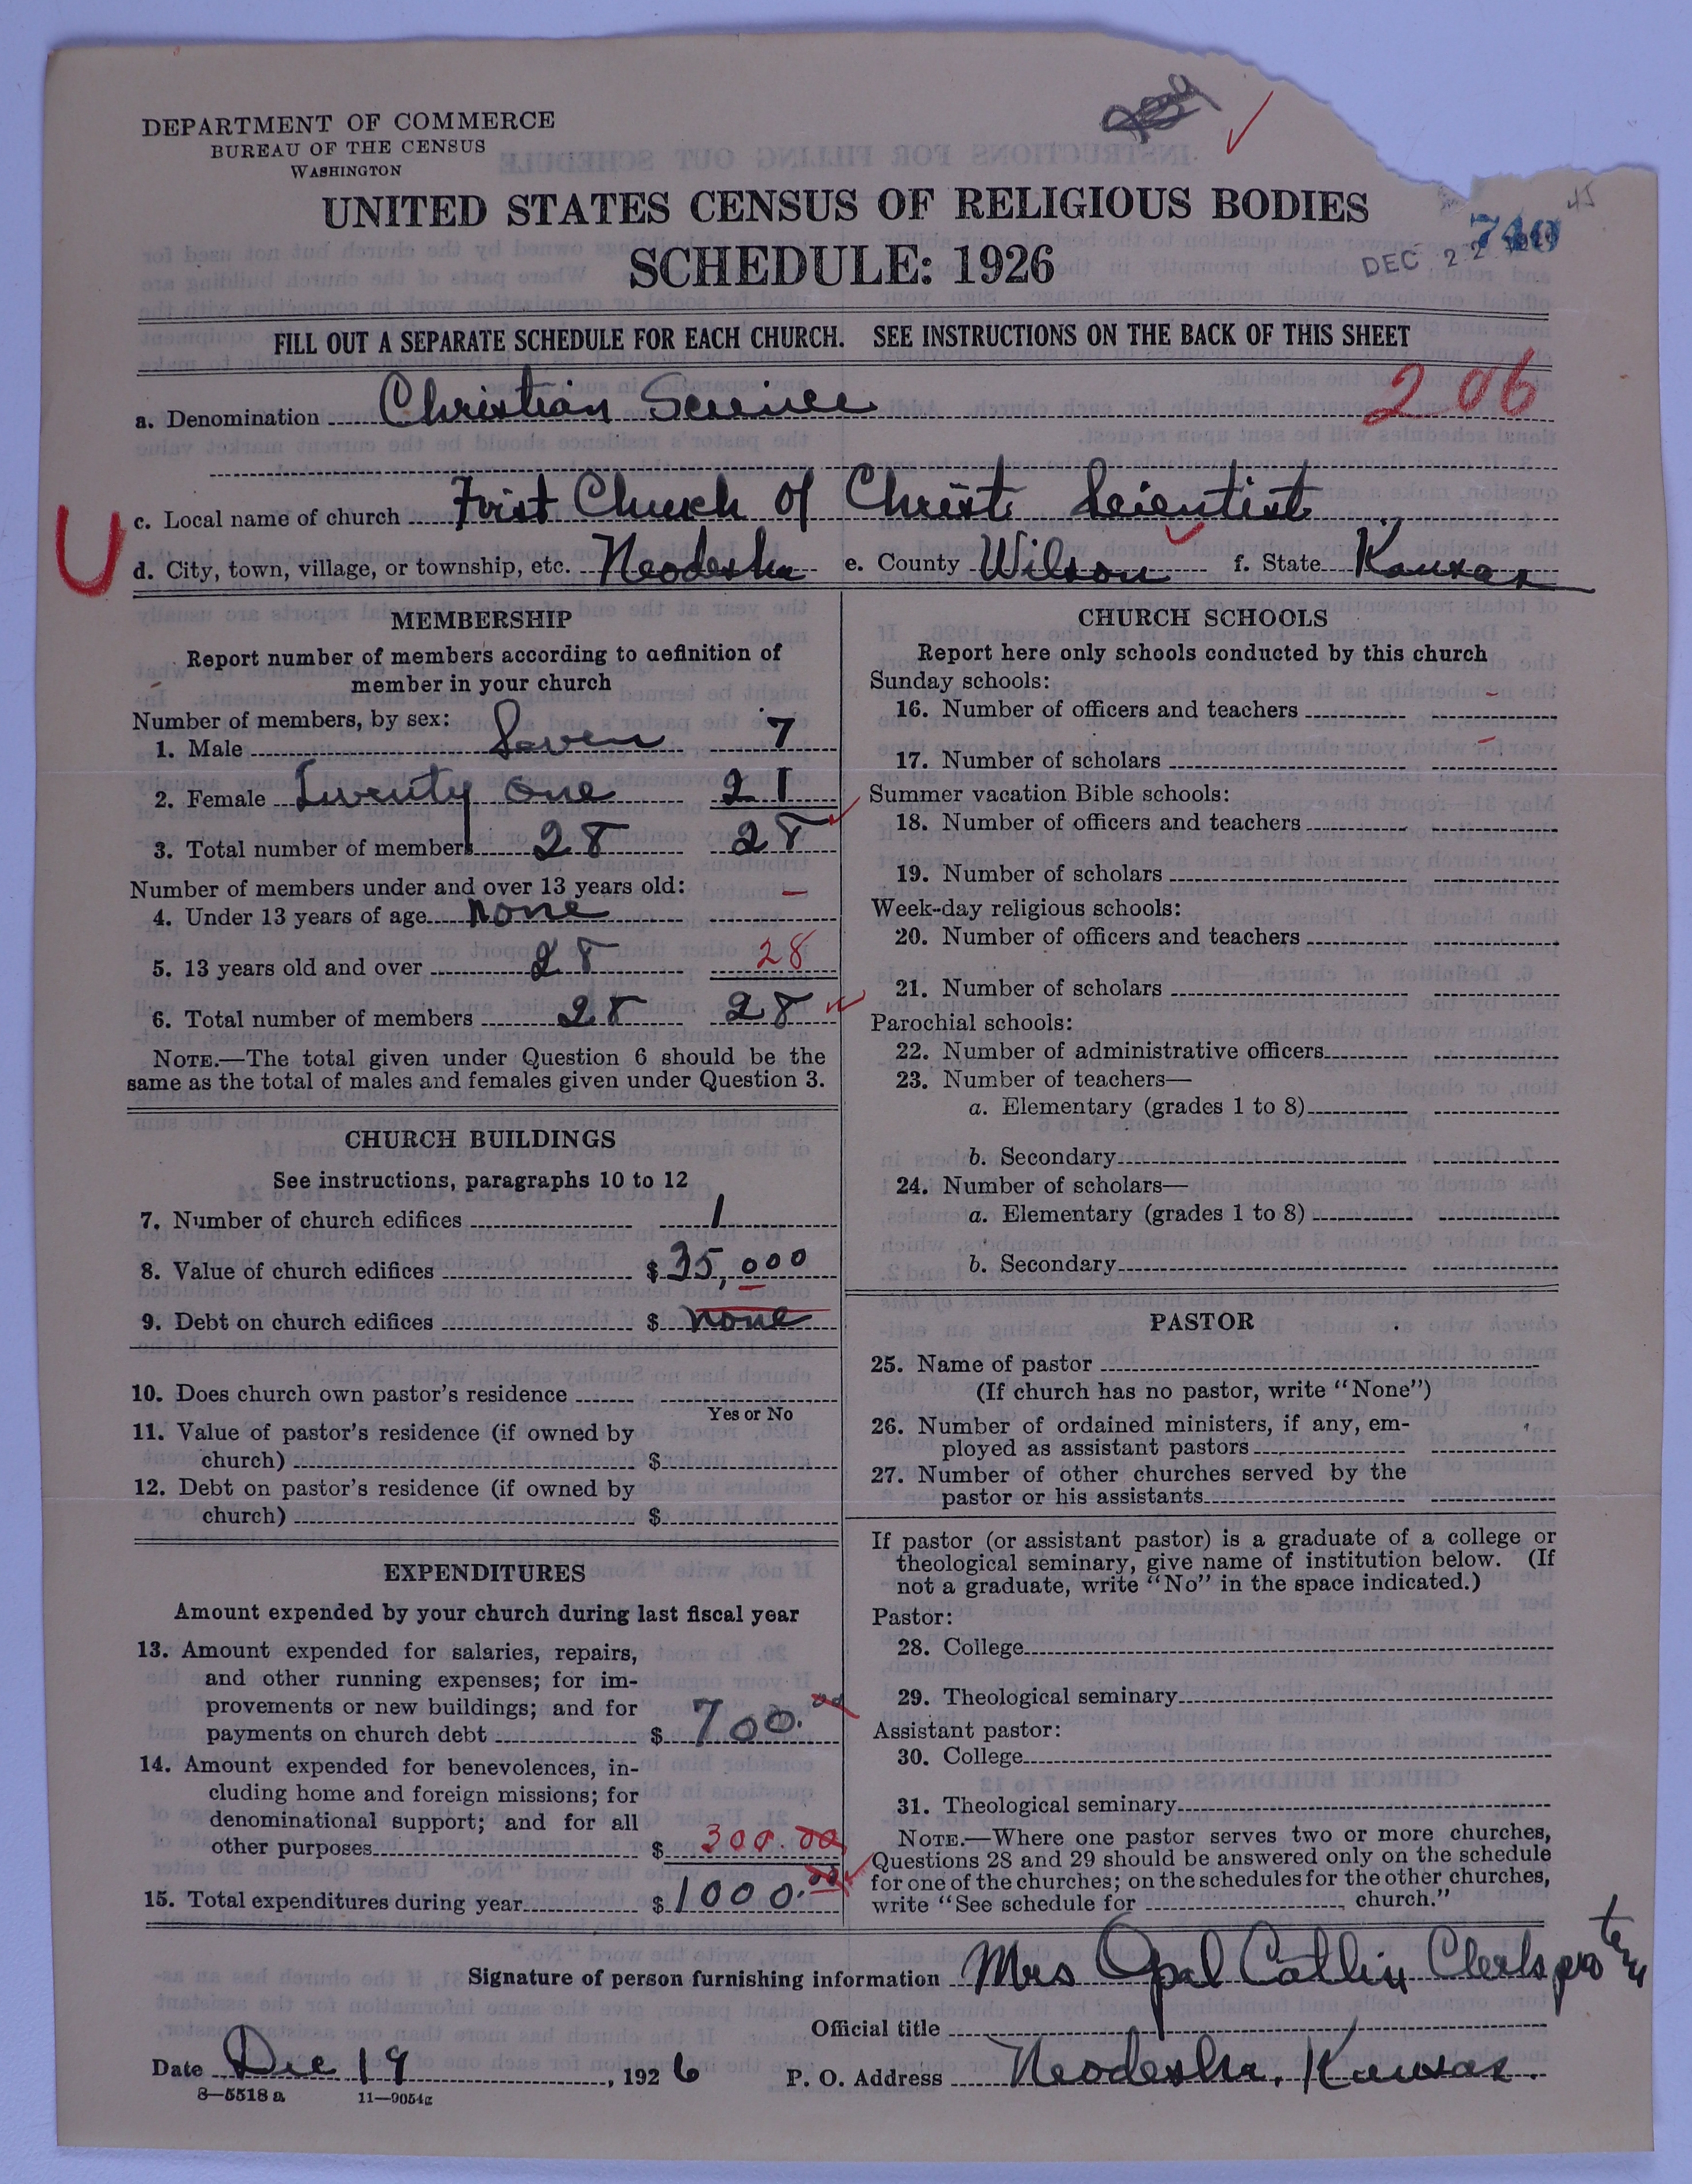 DEPARTMENT OF COMMERCE
BUREAU OF THE CENSUS
WASHINGTON
UNITED STATES CENSUS OF RELIGIOUS BODIES
SCHEDULE: 1926
740
DEC 22
FILL OUT A SEPARATE SCHEDULE FOR EACH CHURCH. SEE INSTRUCTIONS ON THE BACK OF THIS SHEET
a. Denomination Christian Science
206
c. Local name of church First Church of Christ Scientist
U
d. City, town, village, or township, etc. Neodesha e. County Wilson f. State Kansas
MEMBERSHIP
Report number of members according to definition of
member in your church
Number of members, by sex:
1. Male Seven 7
2. Female Twenty one 21
3. Total number of members 28 28
Number of members under and over 13 years old: –
4. Under 13 years of age None
5. 13 years old and over 28 28
6. Total number of members 28 28
NOTE.—The total given under Question 6 should be the
same as the total of males and females given under Question 3.
CHURCH BUILDINGS
See instructions, paragraphs 10 to 12
7. Number of church edifices 1
8. Value of church edifices $ 35,000
9. Debt on church edifices $ none
10. Does church own pastor's residence
Yes or No
11. Value of pastor's residence (if owned by
church) $
12. Debt on pastor's residence (if owned by
church) $
EXPENDITURES
Amount expended by your church during last fiscal year
13. Amount expended for salaries, repairs,
and other running expenses; for im-
provements or new buildings; and for
payments on church debt $ 700.00
14. Amount expended for benevolences, in-
cluding home and foreign missions; for
denominational support; and for all
other purposes $ 300.00
15. Total expenditures during year $ 1000.00
CHURCH SCHOOLS
Report here only schools conducted by this church
Sunday schools:
16. Number of officers and teachers –
17. Number of scholars –
Summer vacation Bible schools:
18. Number of officers and teachers
19. Number of scholars
Week-day religious schools:
20. Number of officers and teachers
21. Number of scholars
Parochial schools:
22. Number of administrative officers
23. Number of teachers—
a. Elementary (grades 1 to 8)
b. Secondary
24. Number of scholars—
a. Elementary (grades 1 to 8)
b. Secondary
PASTOR
25. Name of pastor
(If church has no pastor, write "None")
26. Number of ordained ministers, if any, em-
ployed as assistant pastors
27. Number of other churches served by the
pastor or his assistants
If pastor (or assistant pastor) is a graduate of a college or
theological seminary, give name of institution below. (If
not a graduate, write "No" in the space indicated.)
Pastor:
28. College
29. Theological seminary
Assistant pastor:
30. College
31. Theological seminary
NOTE.—Where one pastor serves two or more churches,
Questions 28 and 29 should be answered only on the schedule
for one of the churches; on the schedules for the other churches,
write "See schedule for , church."
Signature of person furnishing information Mrs Opal Catlin Clerk pro tem
Official title
Date Dec 19, 1926 P. O. Address Neodesha, Kansas.
8—5518 a 11—9054a